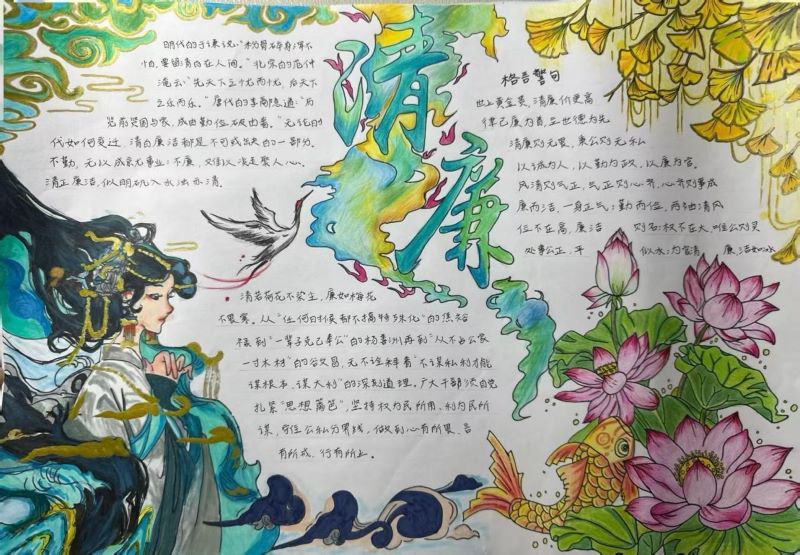 清廉
明代的于谦说:"粉骨碎身浑不
怕,要留清白在人间。"北宋的范仲
淹云:"先天下之忧而忧,后天下
之乐而乐。"唐代的李商隐道:"历
览前贤国与家,成由勤俭破由奢。"无论时
代如何变迁,清白廉洁都是不可或缺的一部分。
不勤,无以成就大事业;不廉,难以凝聚人心。
清正廉洁,似明矾入水浊亦清。
格言警句
世上黄金贵,清廉价更高
律己廉为首,立世德为先
清廉则无畏,秉公则无私
以诚为人,以勤为政,以廉为官。
风清则气正,气正则心齐,心齐则事成
廉而洁,一身正气;勤而俭,两袖清风
位不在高,廉洁 则名;权不在大,唯公则灵
处事公正,平 似水;为官清 廉,洁如冰
清若荷花不染尘,廉如梅花
不畏寒。从"任何时候都不搞特殊化"的焦裕
禄到"一辈子克己奉公"的杨善洲再到"从不占公家
一寸木材"的谷文昌,无不诠释着"不谋私利才能
谋根本、谋大利"的深刻道理。广大干部须自觉
扎紧"思想篱笆",坚持权为民所用、利为民所
谋,守住公私分界线,做到心有所畏、言
有所戒、行有所止。